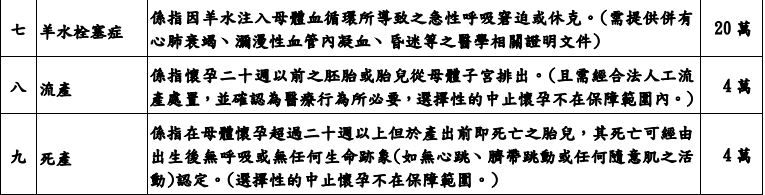 係指因羊水注入母體血循環所導致之急性呼吸窘迫或休克。(需提供併有
七 羊水栓塞症 20 萬
心肺衰竭、瀰漫性血管內凝血、昏迷等之醫學相關證明文件)
係指懷孕二十週以前之胚胎或胎兒從母體子宮排出。(且需經合法人工流
八 流產 4 萬
產處置，並確認為醫療行為所必要，選擇性的中止懷孕不在保障範圍內。)
係指在母體懷孕超過二十週以上但於產出前即死亡之胎兒，其死亡可經由
九 死產 出生後無呼吸或無任何生命跡象(如無心跳、臍帶跳動或任何隨意肌之活 4 萬
動)認定。(選擇性的中止懷孕不在保障範圍。)